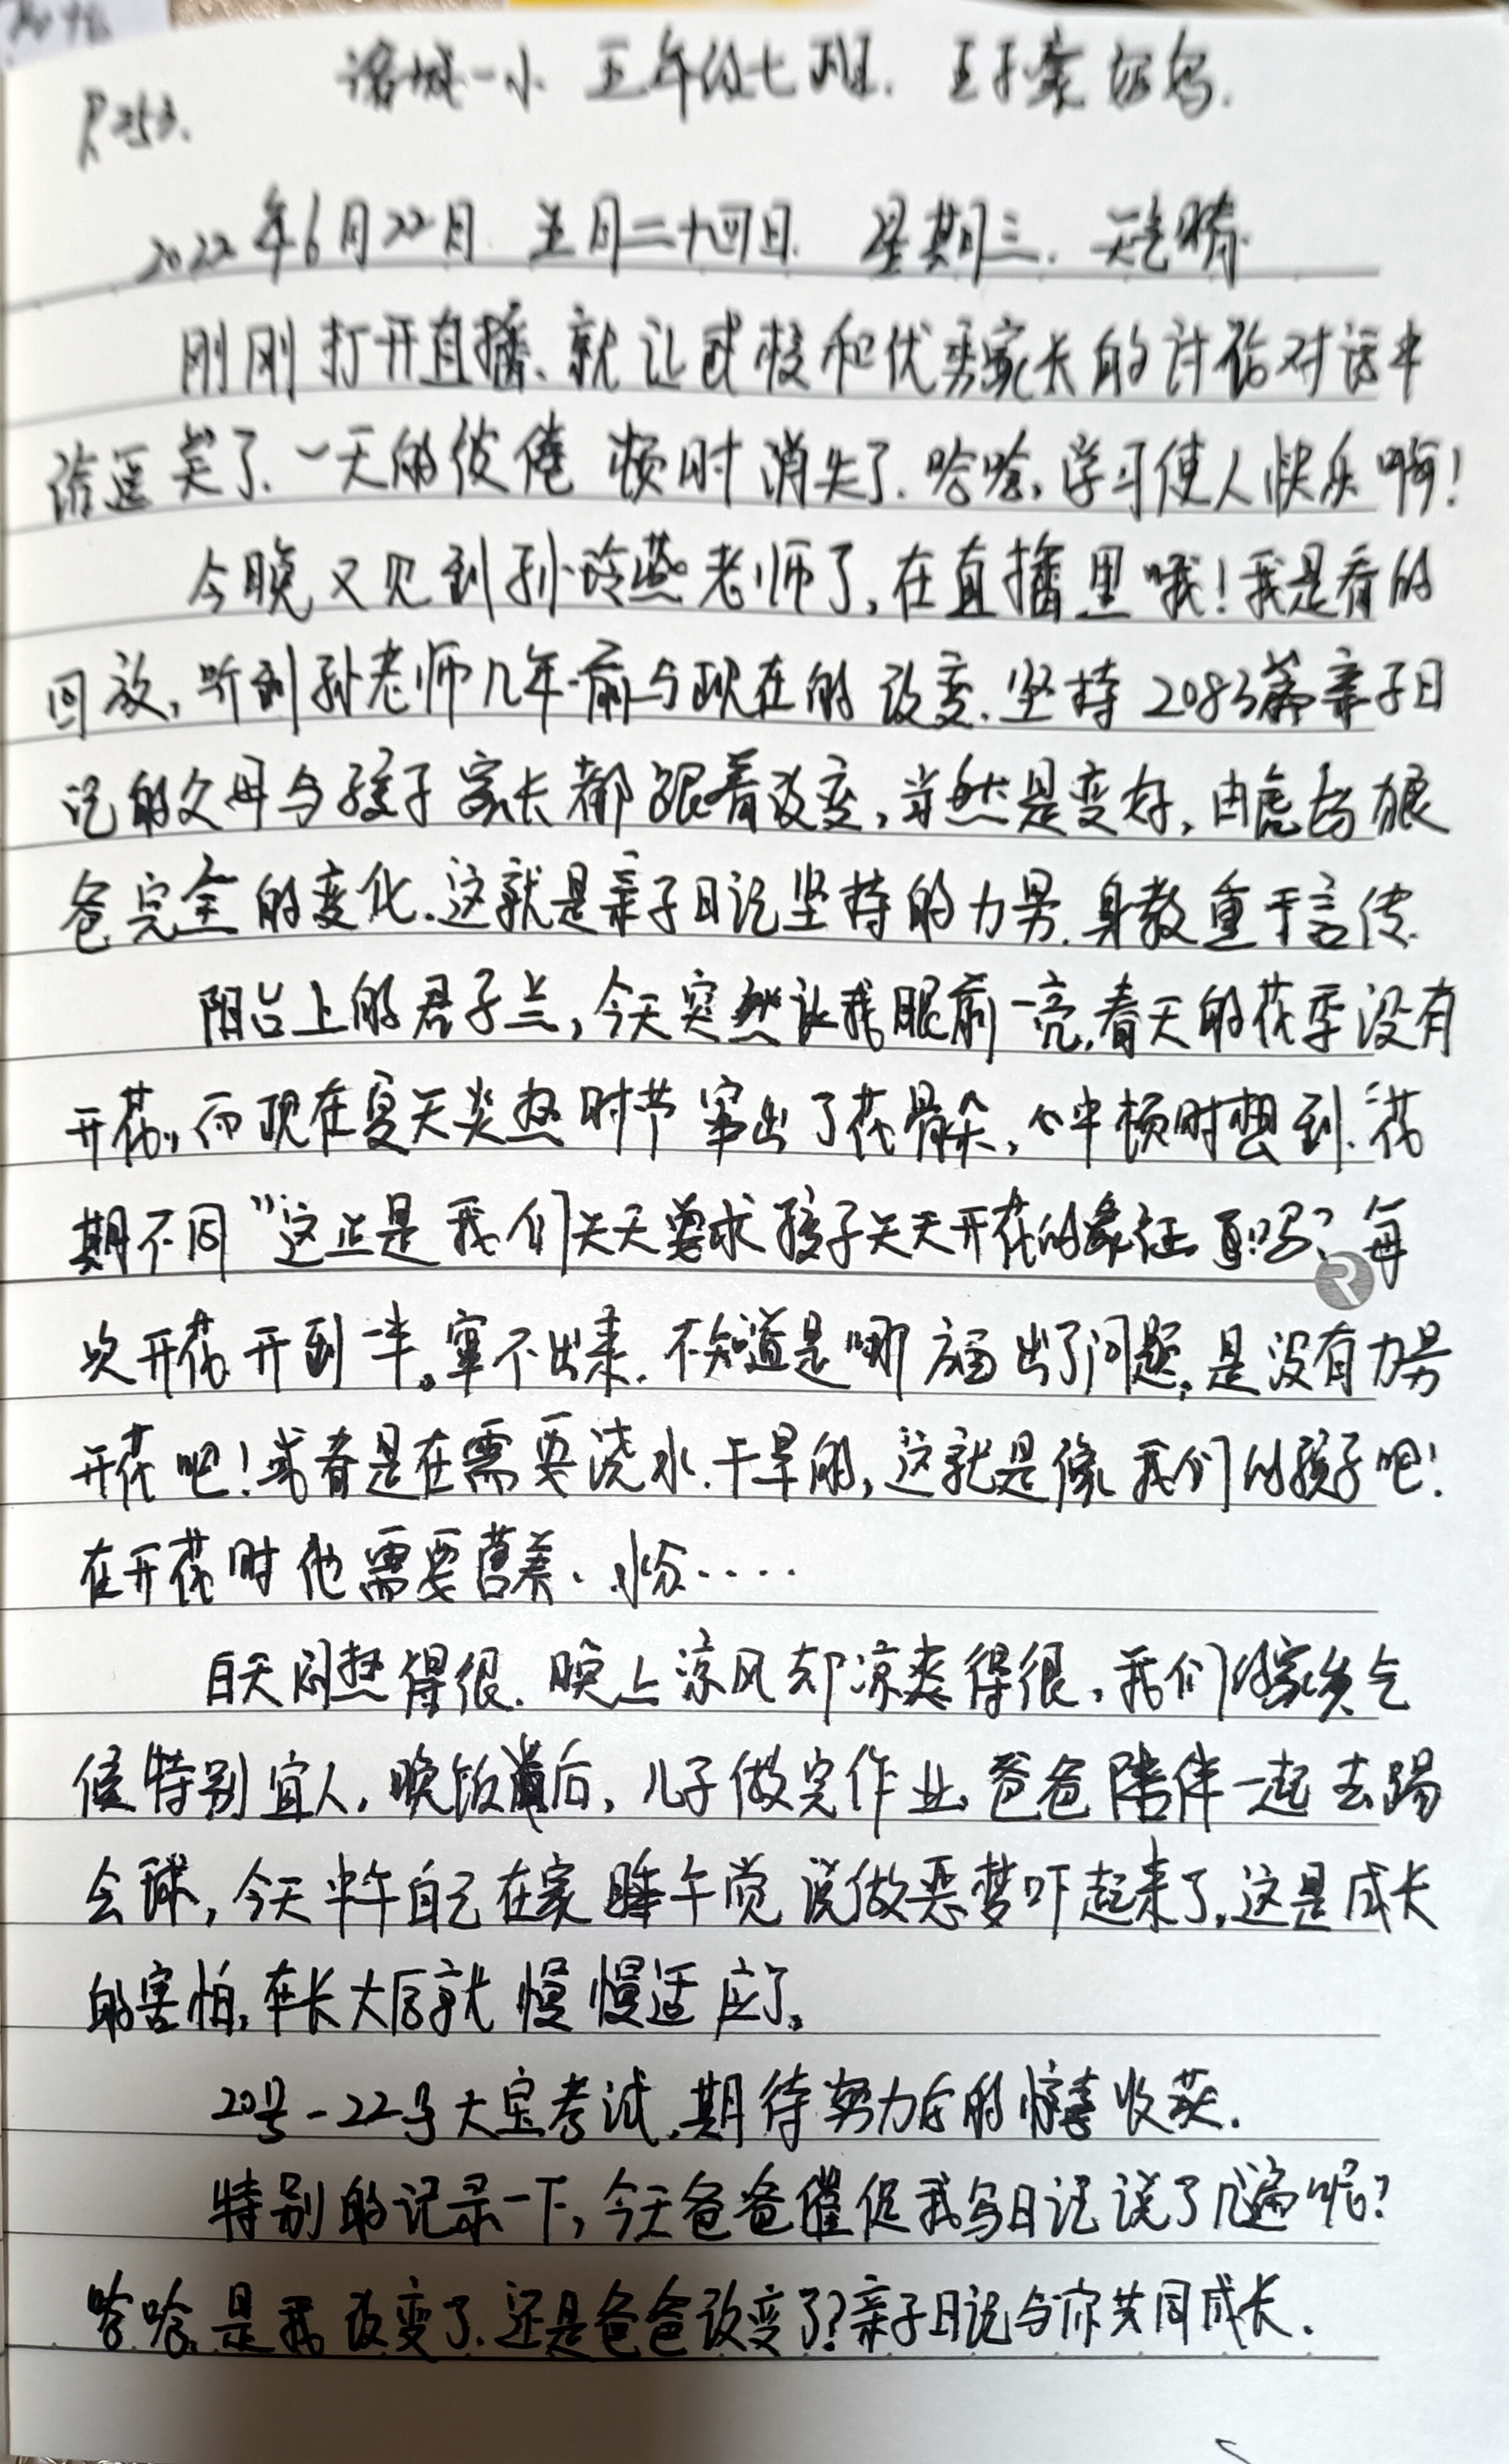 诸城一小 五年级七班. 王子豪妈妈.
P253.
2022年6月22日 五月二十四日. 星期三. 天气晴.
刚刚打开直播、就让戚校和优秀家长的讨论对话中
逗笑了.一天的疲倦 顿时消失了.哈哈,学习使人快乐啊!
今晚又见到孙玲燕老师了,在直播里哦!我是看的
回放,听到孙老师几年前与现在的改变.坚持2083篇亲子日
记的父母与孩子家长都跟着改变,当然是变好,由虎妈狼
爸完全的变化.这就是亲子日记坚持的力男.身教重于言传.
阳台上的君子兰,今天突然让我眼前一亮,春天的花季没有
开花,而现在夏天炎热时节窜出了花骨朵,心中顿时想到“花
期不同”这正是我们天天要求孩子天天开花的象征 吗?每
次开花开到一半。窜不出来.不知道是哪方面出了问题,是没有力男
开花吧!或者是在需要浇水.干旱的,这就是像我们的孩子吧!
在开花时他需要营养、水分.....
白天闷热得很.晚上凉风却凉爽得很,我们的家矣气
候特别宜人,晚饭后,儿子做完作业爸爸陪伴一起去踢
会球,今天中午自己在家睡午觉说做恶梦吓起来了,这是成长
的害怕,在长大后就慢慢适应了。
20号-22号大宝考试,期待努力后的惊喜收获.
特别的记录一下,今天爸爸催促我写日记说了几遍呢?
哈哈,是我改变了.还是爸爸改变了?亲子日记与你共同成长.